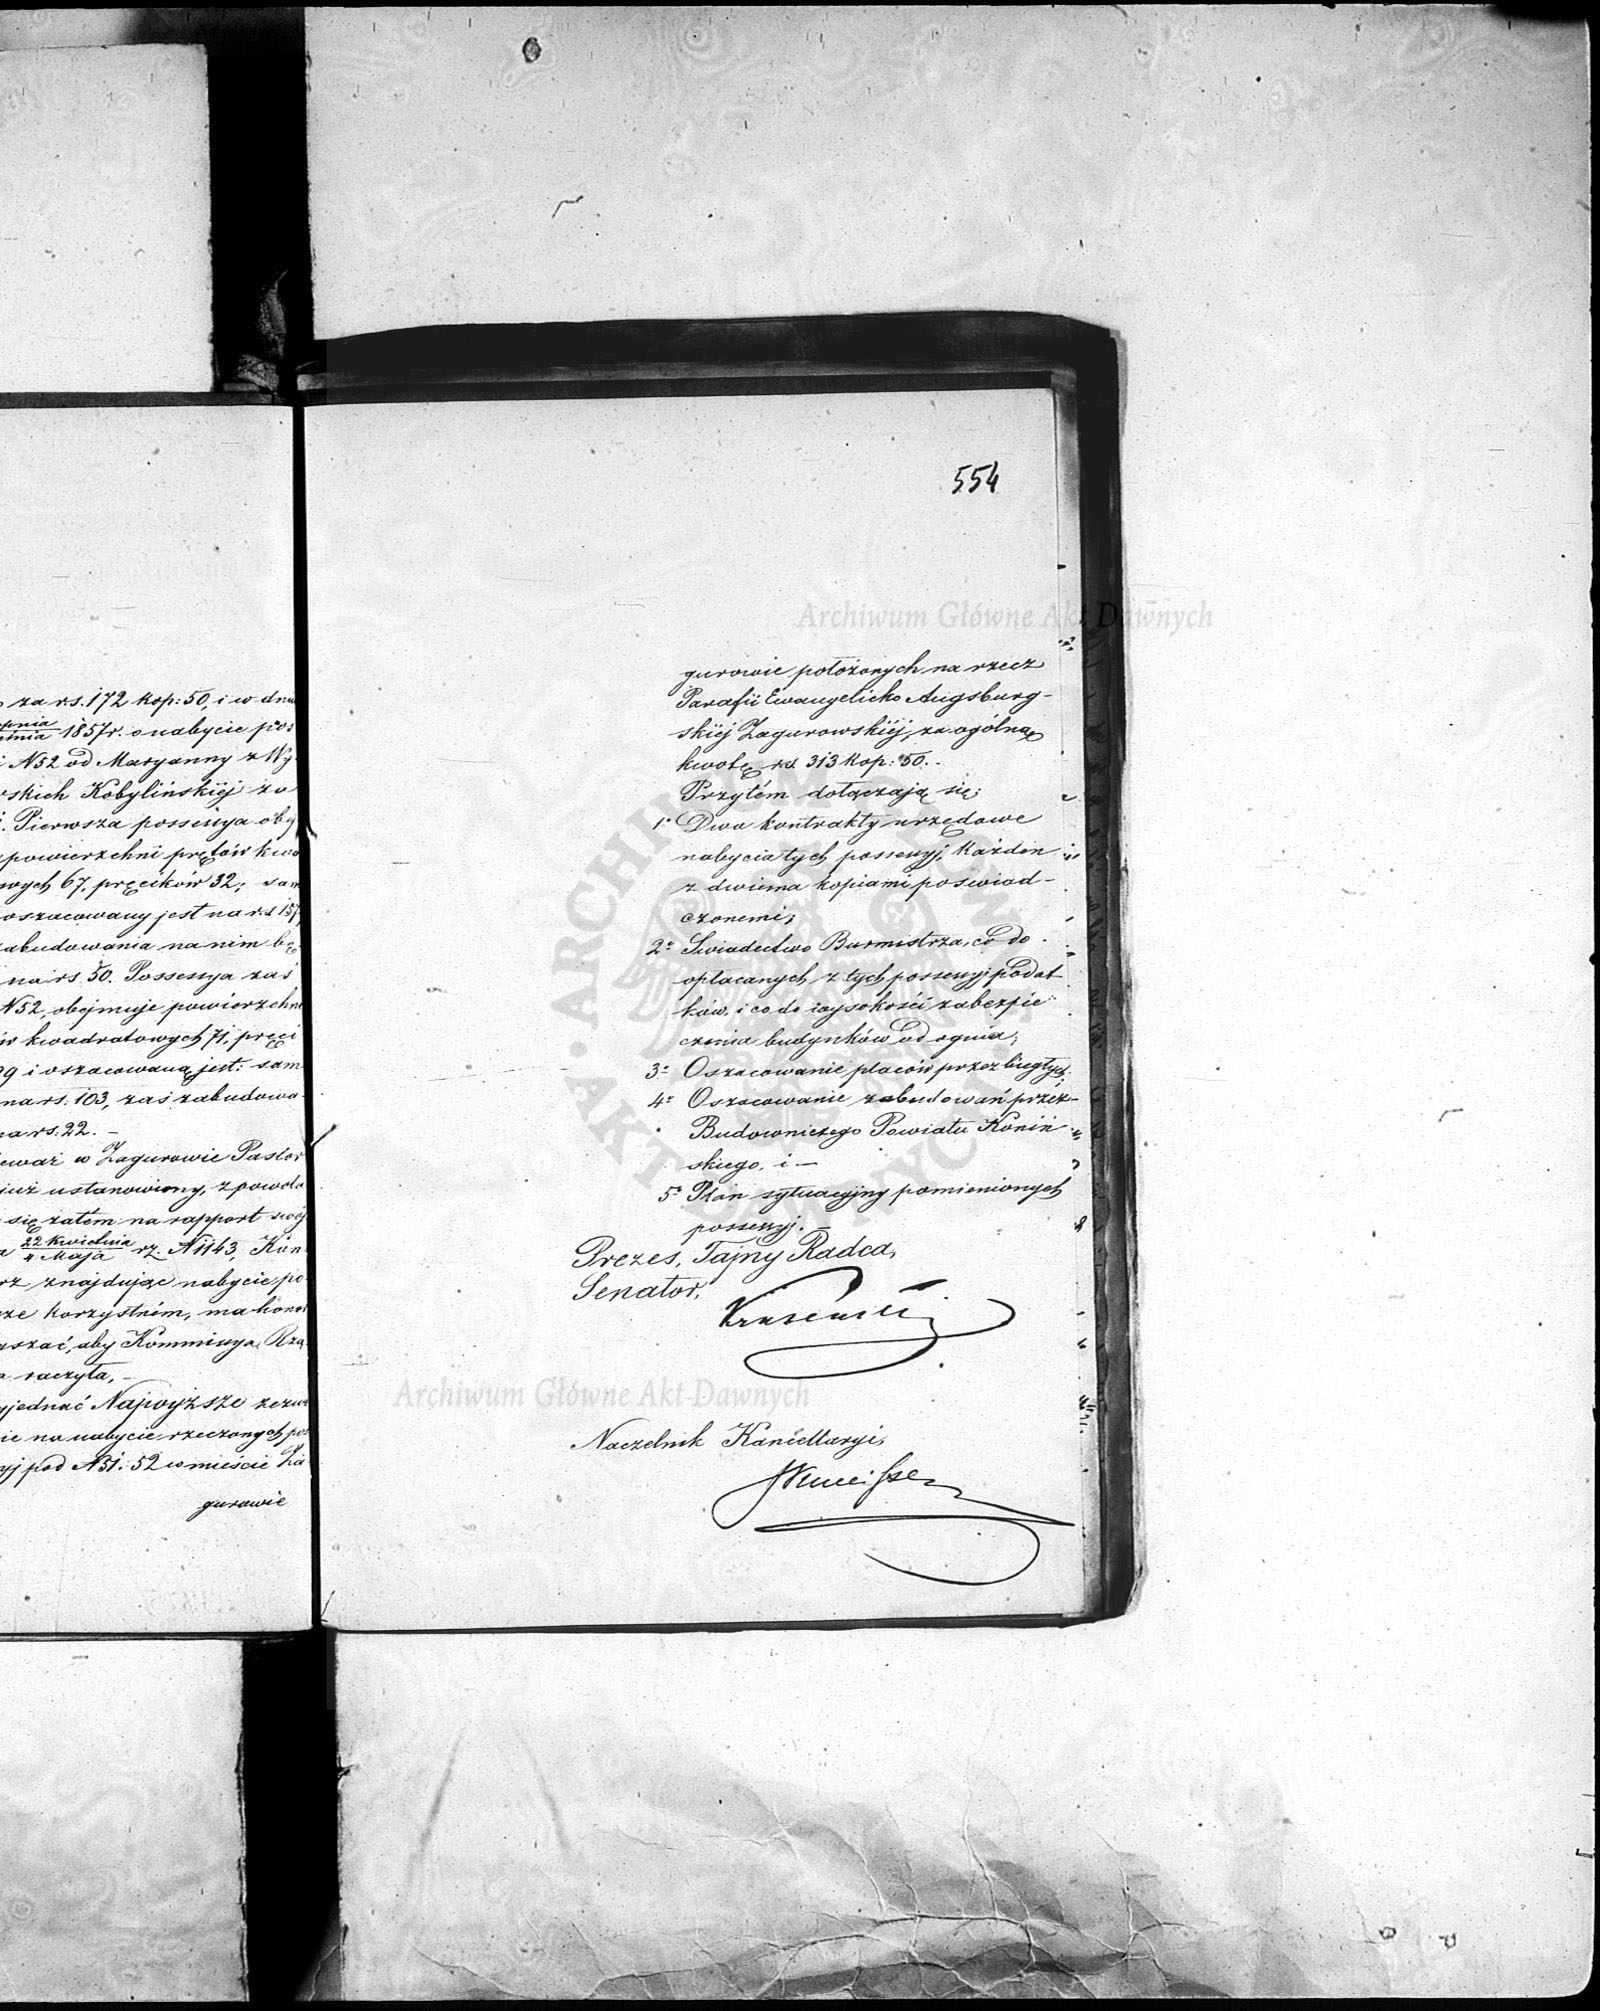 za rs. 172 kop: 50, i w dniu
1857 r. o nabycie pos
N 52 od Maryanny z Wy
skich Kobylińskiéj za
Pierwsza possessya obej
powierzchni prętów kwa
wych 67, pręcików 32; sam
oszacowany jest na rs 157
zabudowania na nim bę
na rs. 50. Possessya zaś
N 52, obejmuje powierzchni
w kwadratowych 71, pręci
9 i oszacowaną jest: sam
na rs. 103, zaś zabudowa
na rs. 22. –
w Zagurowie Pastor
już ustanowiony, z powoła
się zatém na rapport swój
22 Kwietnia
4 Maja rz. N 1143, Kon
rz znajdując nabycie po
korzystném, ma honor
aby Kommissya Rzą
raczyła, –
yjednać Najwyższe zezwo
ie na nabycie rzeczonych pos
yj pod N 51. 52 w mieście Za
gurowie
554
gurowie położonych na rzecz
Parafii Ewangelicko Augsburg-
skiéj Zagurowskiéj, za ogólną
kwotę rs 313 kop: 50. –
Przytém dołączają się:
1° Dwa kontrakty urzędowe
nabycia tych possessyj, każden
z dwiema kopiami poswiad-
czonemi;
2° Swiadectwo Burmistrza, co do
opłacanych z tych possessyj podat
ków, i co do wysokości zabezpie
czenia budynków od ognia;
3° Oszacowanie placów przez biegłych;
4° Oszacowanie zabudowań przéz
Budowniczego Powiatu Koniń
skiego, i –
5° Plan sytuacyjny pomienionych
possessyj. –
Prezes, Tajny Radca,
Senator,
Naczelnik Kancellaryi,
Archiwum Główne Akt Dawnych
Archiwum Główne Akt Dawnych